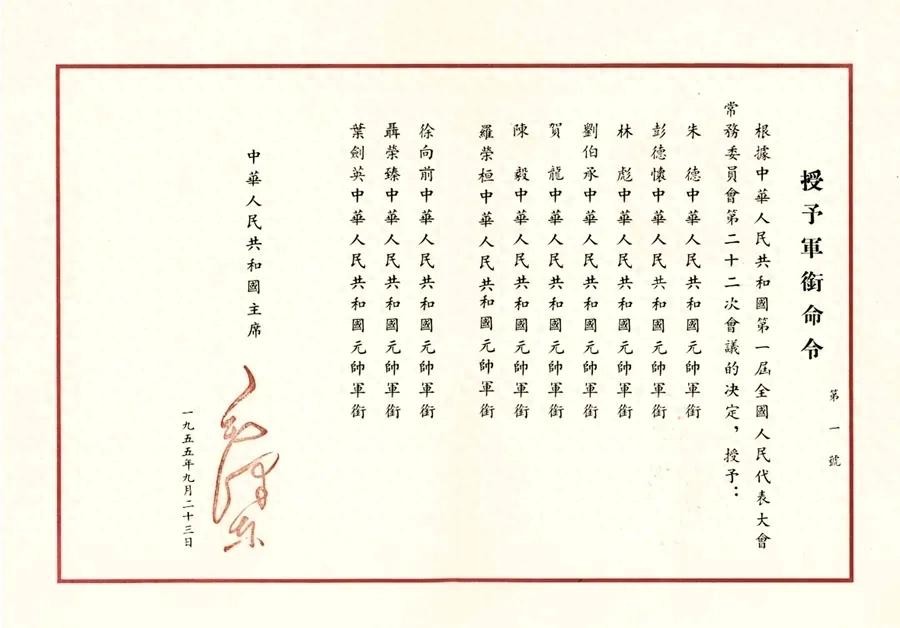 授予軍銜命令
第一號
根據中華人民共和國第一屆全國人民代表大會
常務委員會第二十二次會議的決定，授予：
朱　德中華人民共和國元帥軍銜
彭德懷中華人民共和國元帥軍銜
林　彪中華人民共和國元帥軍銜
劉伯承中華人民共和國元帥軍銜
賀　龍中華人民共和國元帥軍銜
陳　毅中華人民共和國元帥軍銜
羅榮桓中華人民共和國元帥軍銜
徐向前中華人民共和國元帥軍銜
聶榮臻中華人民共和國元帥軍銜
葉劍英中華人民共和國元帥軍銜
中華人民共和國主席
毛澤東
一九五五年九月二十三日